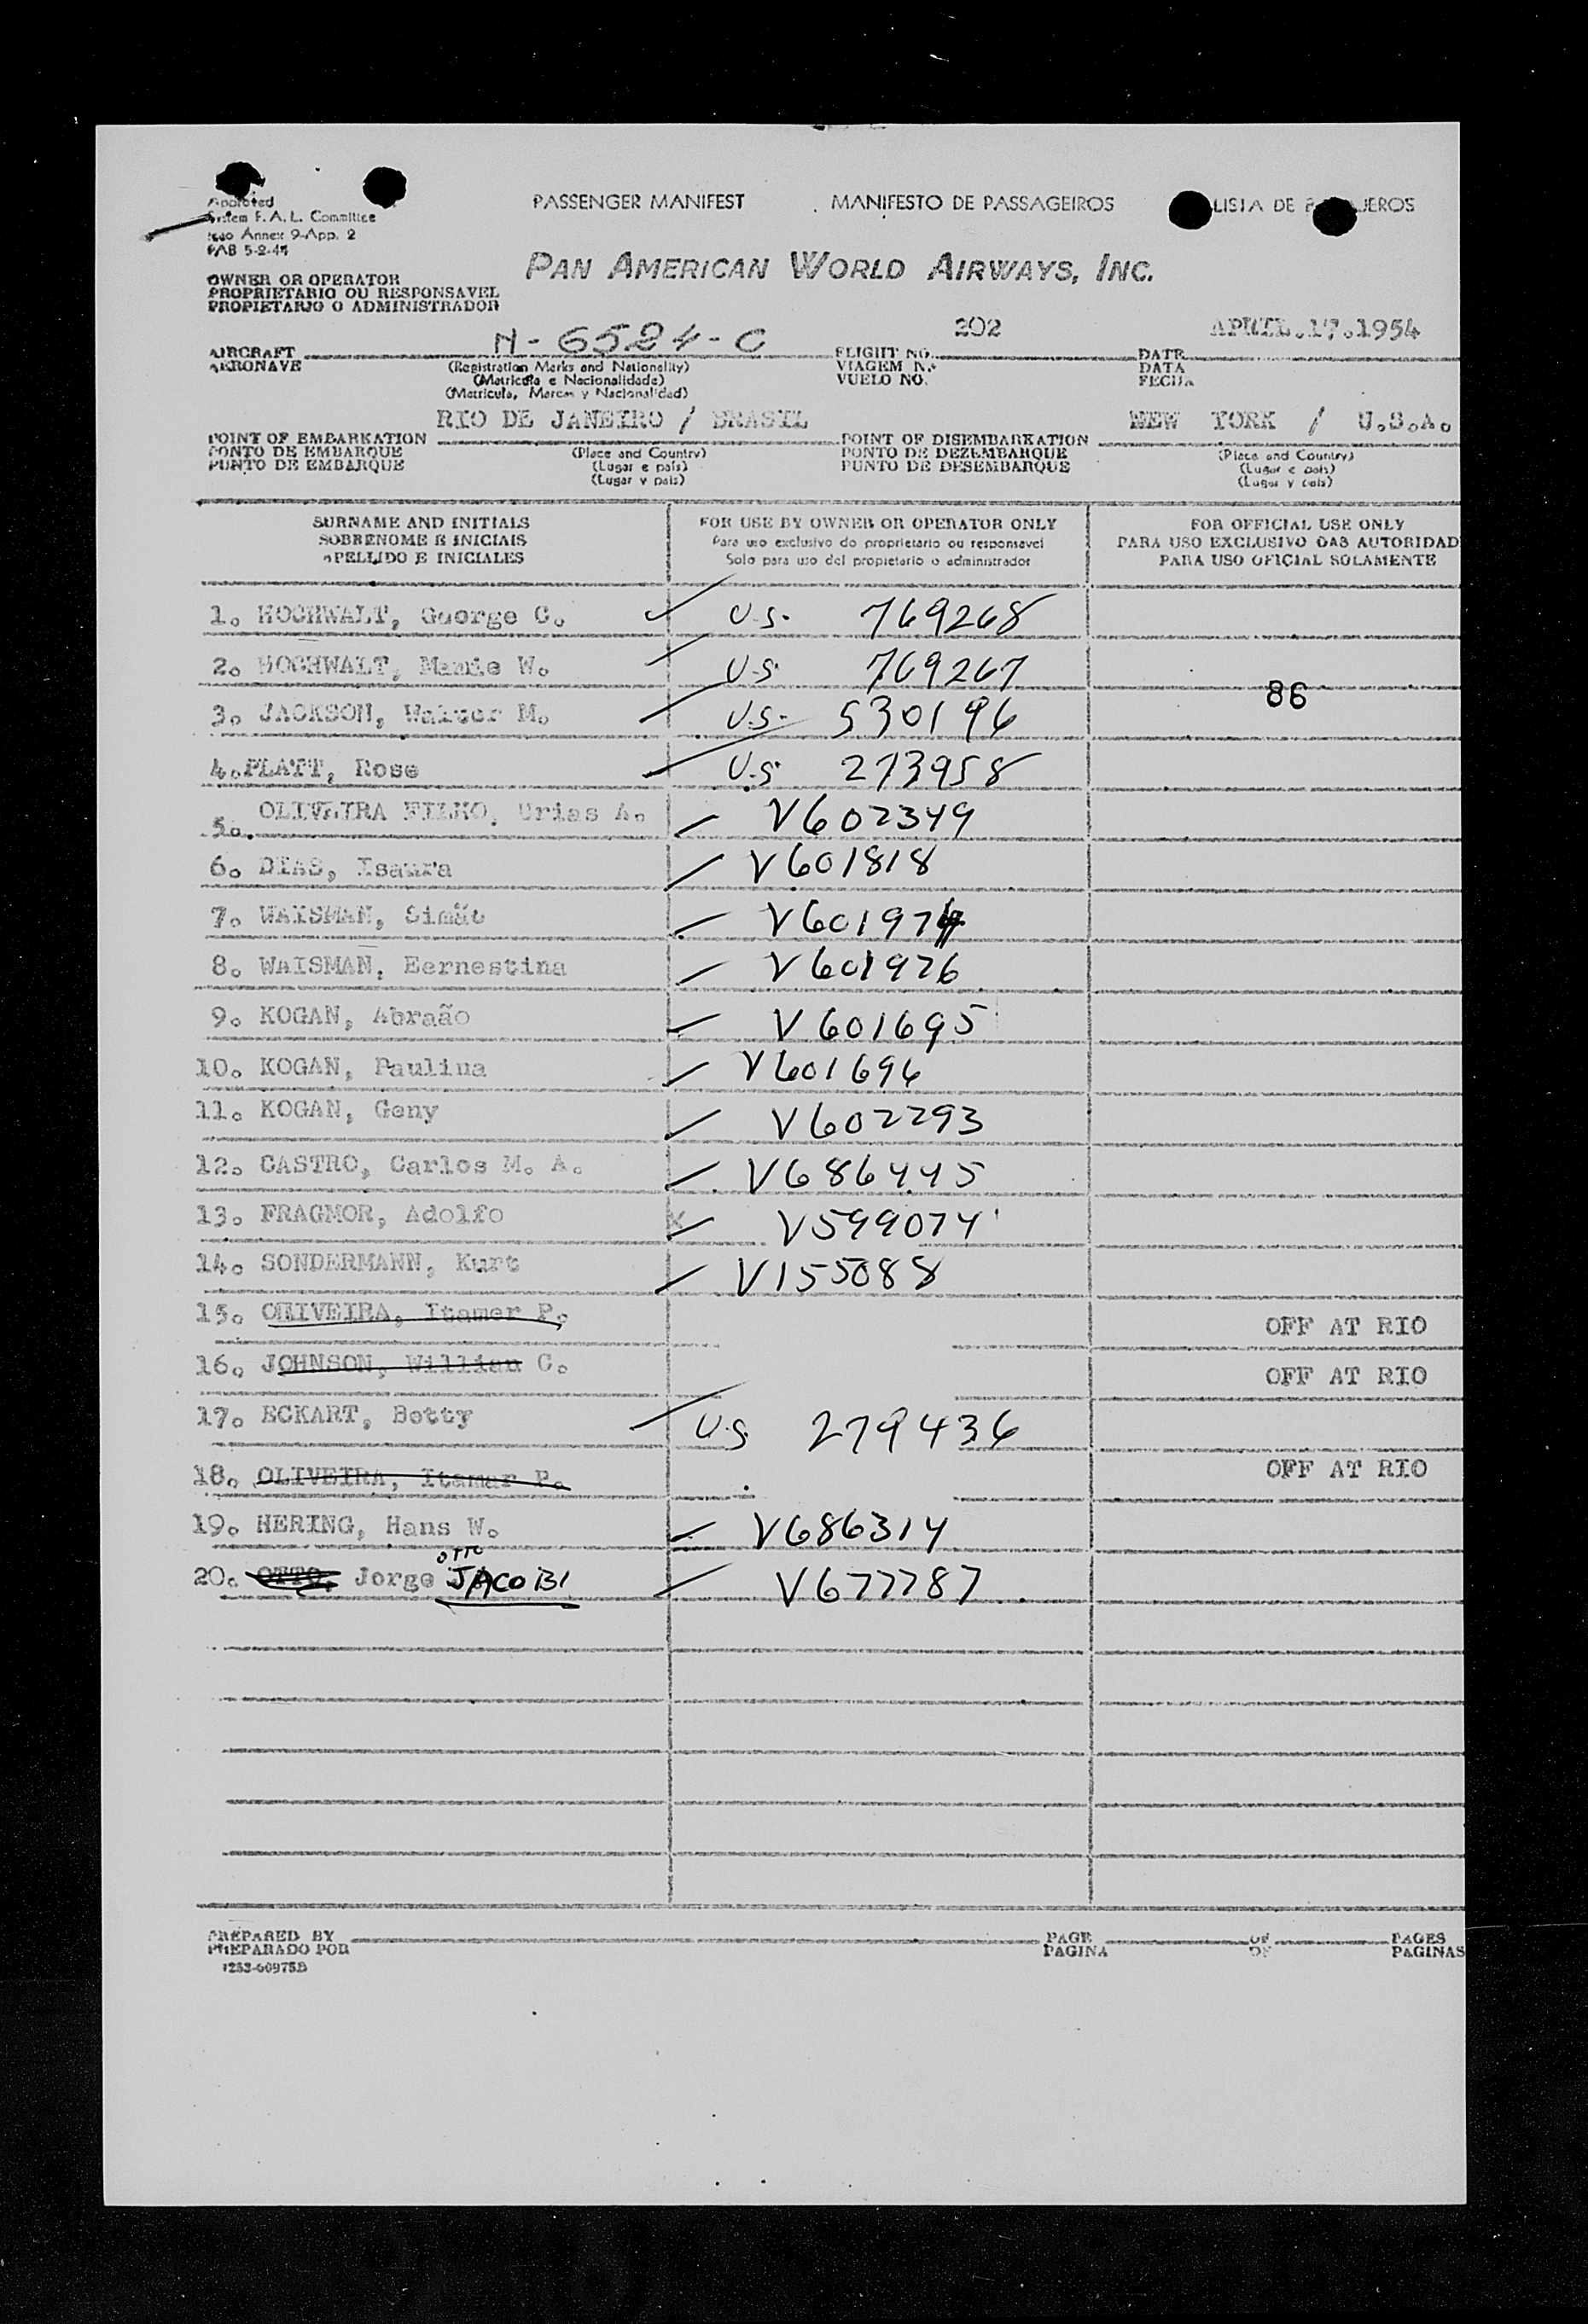 Approved
System F. A. L. Committee
Icao Annex 9-App. 2
PAB 5-2-4
PASSENGER MANIFEST MANIFESTO DE PASSAGEIROS LISTA DE
PAN AMERICAN WORLD AIRWAYS, INC.
OWNER OR OPERATOR
PROPRIETARIO OU RESPONSAVEL
PROPIETARIO O ADMINISTRADOR
AIRCRAFT N-6524-C FLIGHT NO. 202 DATE APRIL.17.1954
AERONAVE (Registration Marks and Nationality) VIAGEM N. DATA
(Matricula e Nacionalidade) VUELO NO. FECHA
(Matricula, Marcas y Nacionalidad)
POINT OF EMBARKATION RIO DE JANEIRO / BRASIL POINT OF DISEMBARKATION NEW YORK / U.S.A.
PONTO DE EMBARQUE (Place and Country) PONTO DE DEZEMBARQUE (Place and Country)
PUNTO DE EMBARQUE (Lugar e país) PUNTO DE DESEMBARQUE (Lugar e país)
(Lugar y pais) (Lugar y pais)
SURNAME AND INITIALS FOR USE BY OWNER OR OPERATOR ONLY FOR OFFICIAL USE ONLY
SOBRENOME E INICIAIS Para uso exclusivo do proprietario ou responsavel PARA USO EXCLUSIVO DAS AUTORIDAD
APELLIDO E INICIALES Solo para uso del propietario o administrador PARA USO OFICIAL SOLAMENTE
1. HOCHWALT, George C. U.S. 769268
2. HOCHWALT, Mamie W. U.S. 769267
86
3. JACKSON, Walter M. U.S. 530196
4. PLATT, Rose U.S. 273958
5. OLIVEIRA FILHO, Urias A. V602349
6. DIAS, Isaura V601818
7. WAISMAN, Simão V601974
8. WAISMAN, Eernestina V601976
9. KOGAN, Abraão V601695
10. KOGAN, Paulina V601696
11. KOGAN, Geny V602293
12. CASTRO, Carlos M. A. V686445
13. FRAGMOR, Adolfo V599074
14. SONDERMANN, Kurt V155088
15. OLIVEIRA, Itamar P. OFF AT RIO
16. JOHNSON, Willian C. OFF AT RIO
17. ECKART, Betty U.S. 279436
18. OLIVEIRA, Itamar P. OFF AT RIO
19. HERING, Hans W. V686314
OTTO
20. OTTO, Jorge JACOBI V677787
PREPARED BY PAGE OF PAGES
PREPARADO POR PAGINA DE PAGINAS
1253-60975B